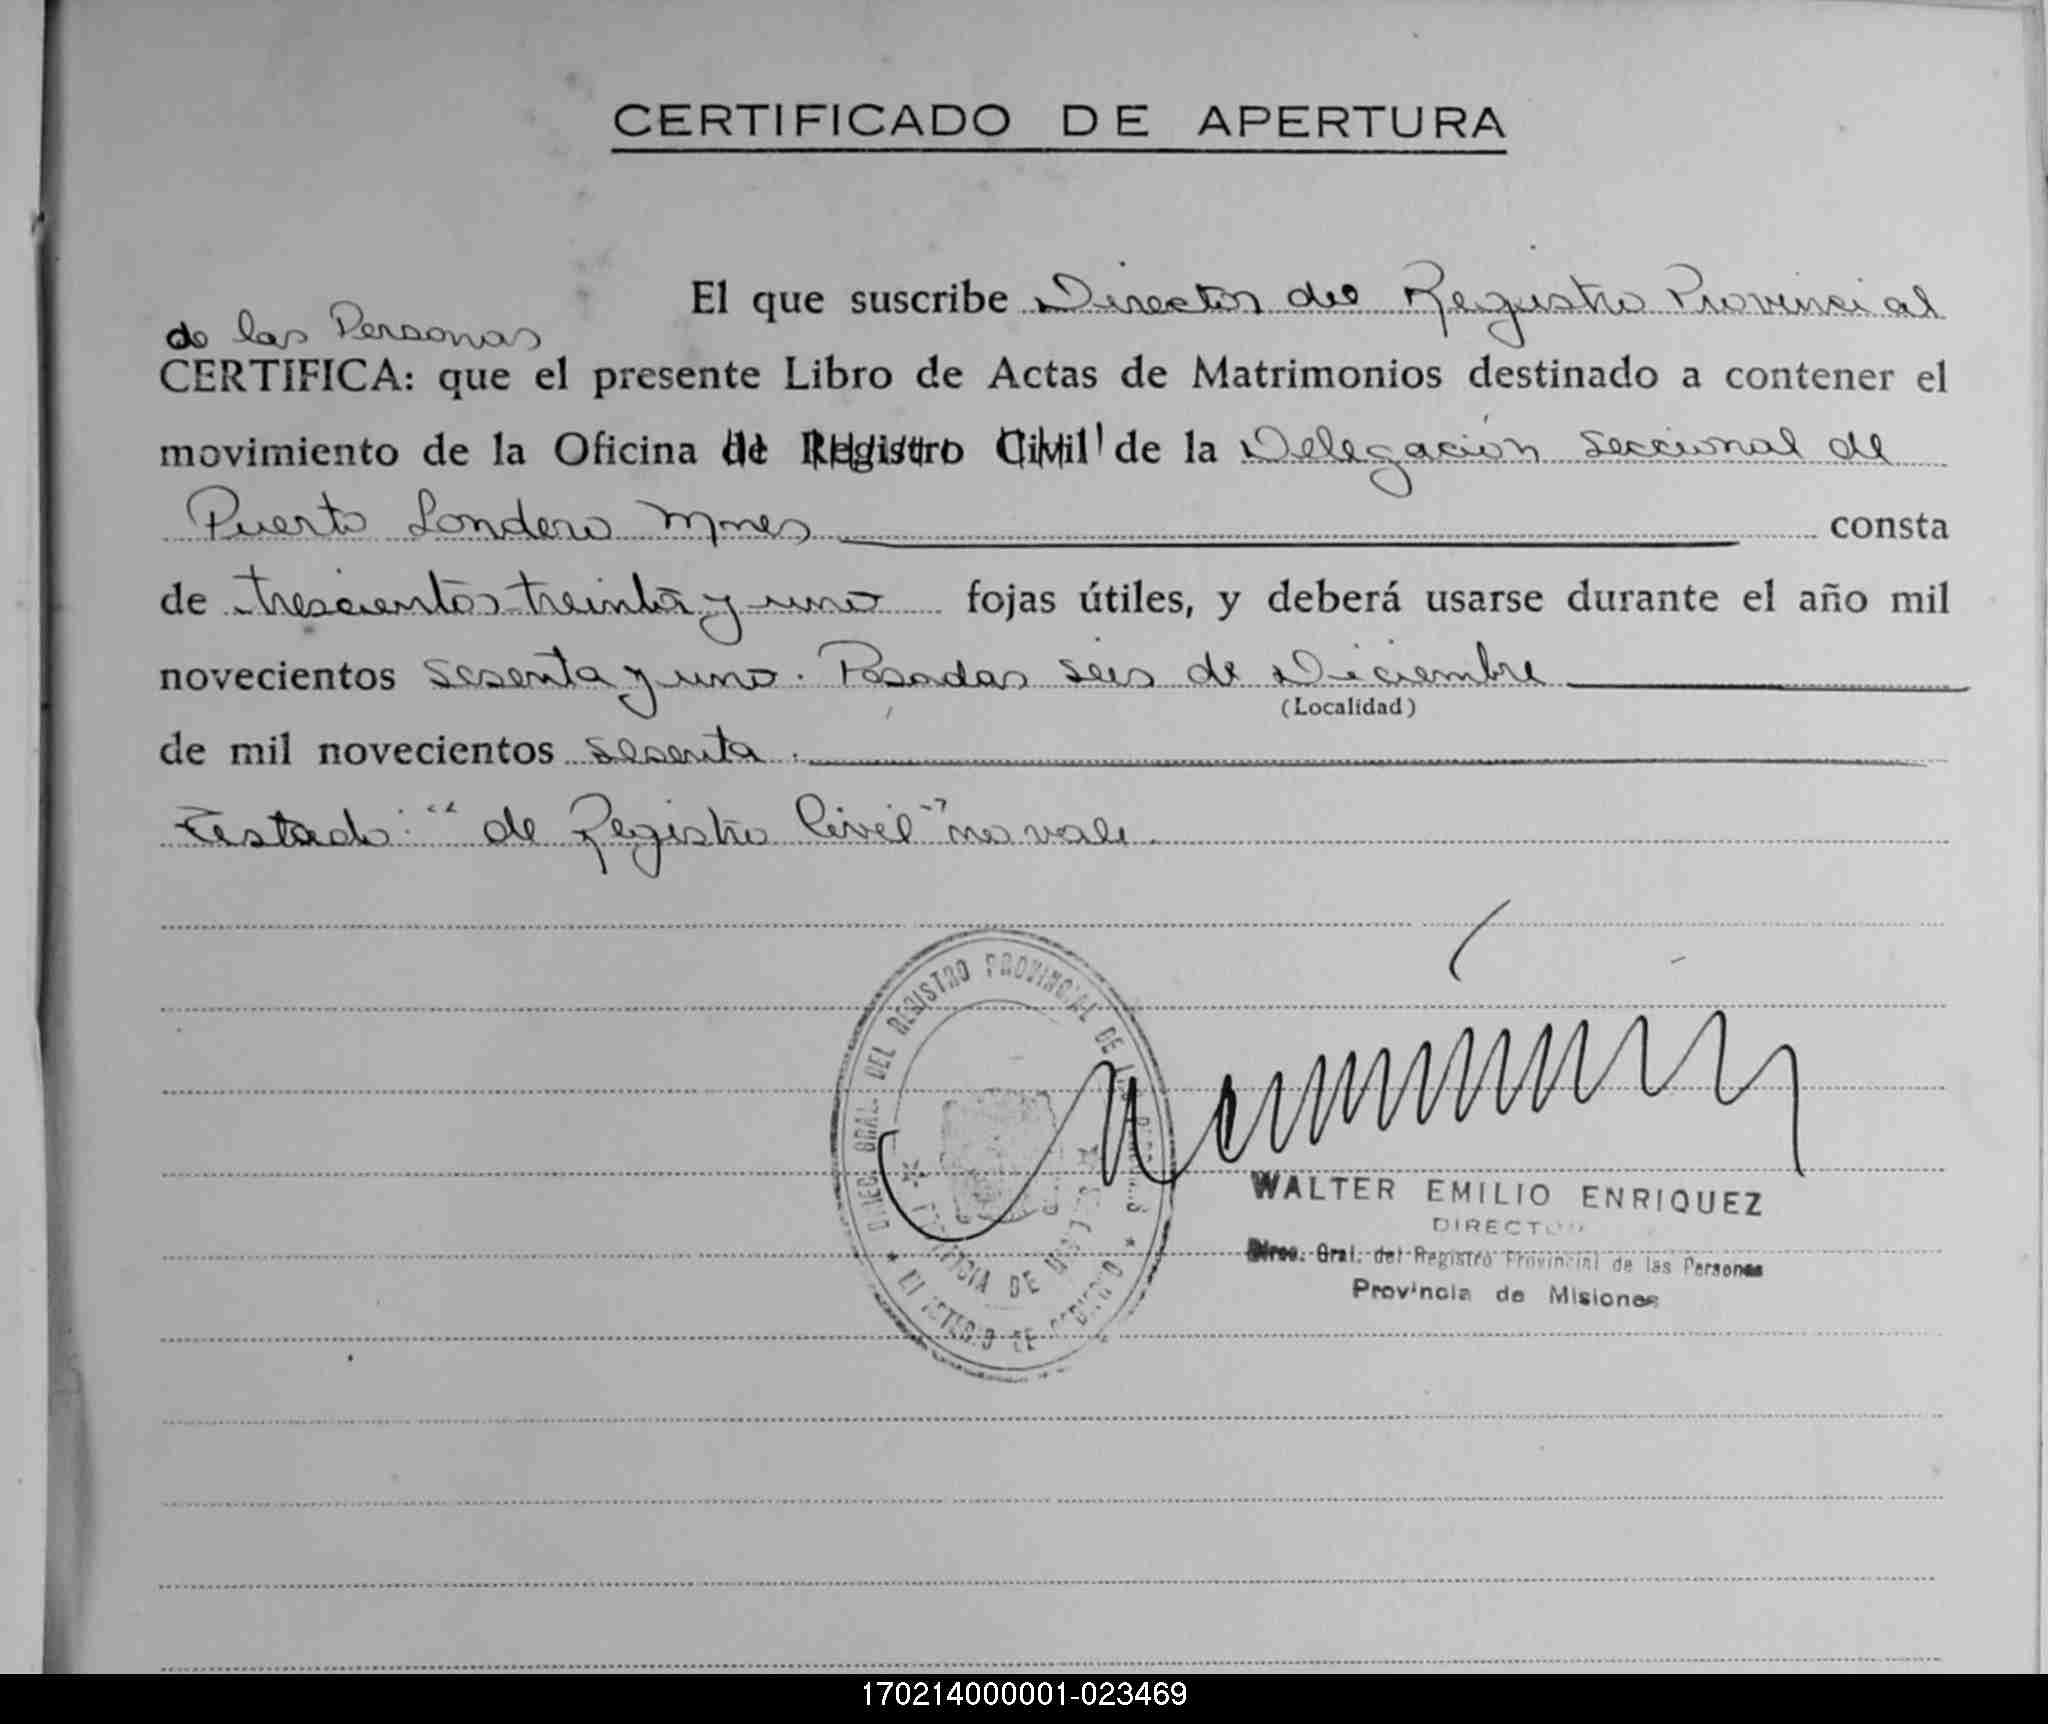 CERTIFICADO DE APERTURA
El que suscribe Director del Registro Provincial
de las Personas
CERTIFICA: que el presente Libro de Actas de Matrimonios destinado a contener el
movimiento de la Oficina de Registro Civil de la Delegación Seccional de
Puerto Londero Mnes consta
de trescientos treinta y uno fojas útiles, y deberá usarse durante el año mil
novecientos sesenta y uno. Posadas seis de Diciembre
(Localidad)
de mil novecientos sesenta.
Testado: "de Registro Civil" no vale.
DIREC. GRAL. DEL REGISTRO PROVINCIAL DE LAS PERSONAS
PROVINCIA DE MISIONES
MINISTERIO DE GOBIERNO
WALTER EMILIO ENRIQUEZ
DIRECTOR
Direc. Gral. del Registro Provincial de las Personas
Provincia de Misiones
170214000001-023469